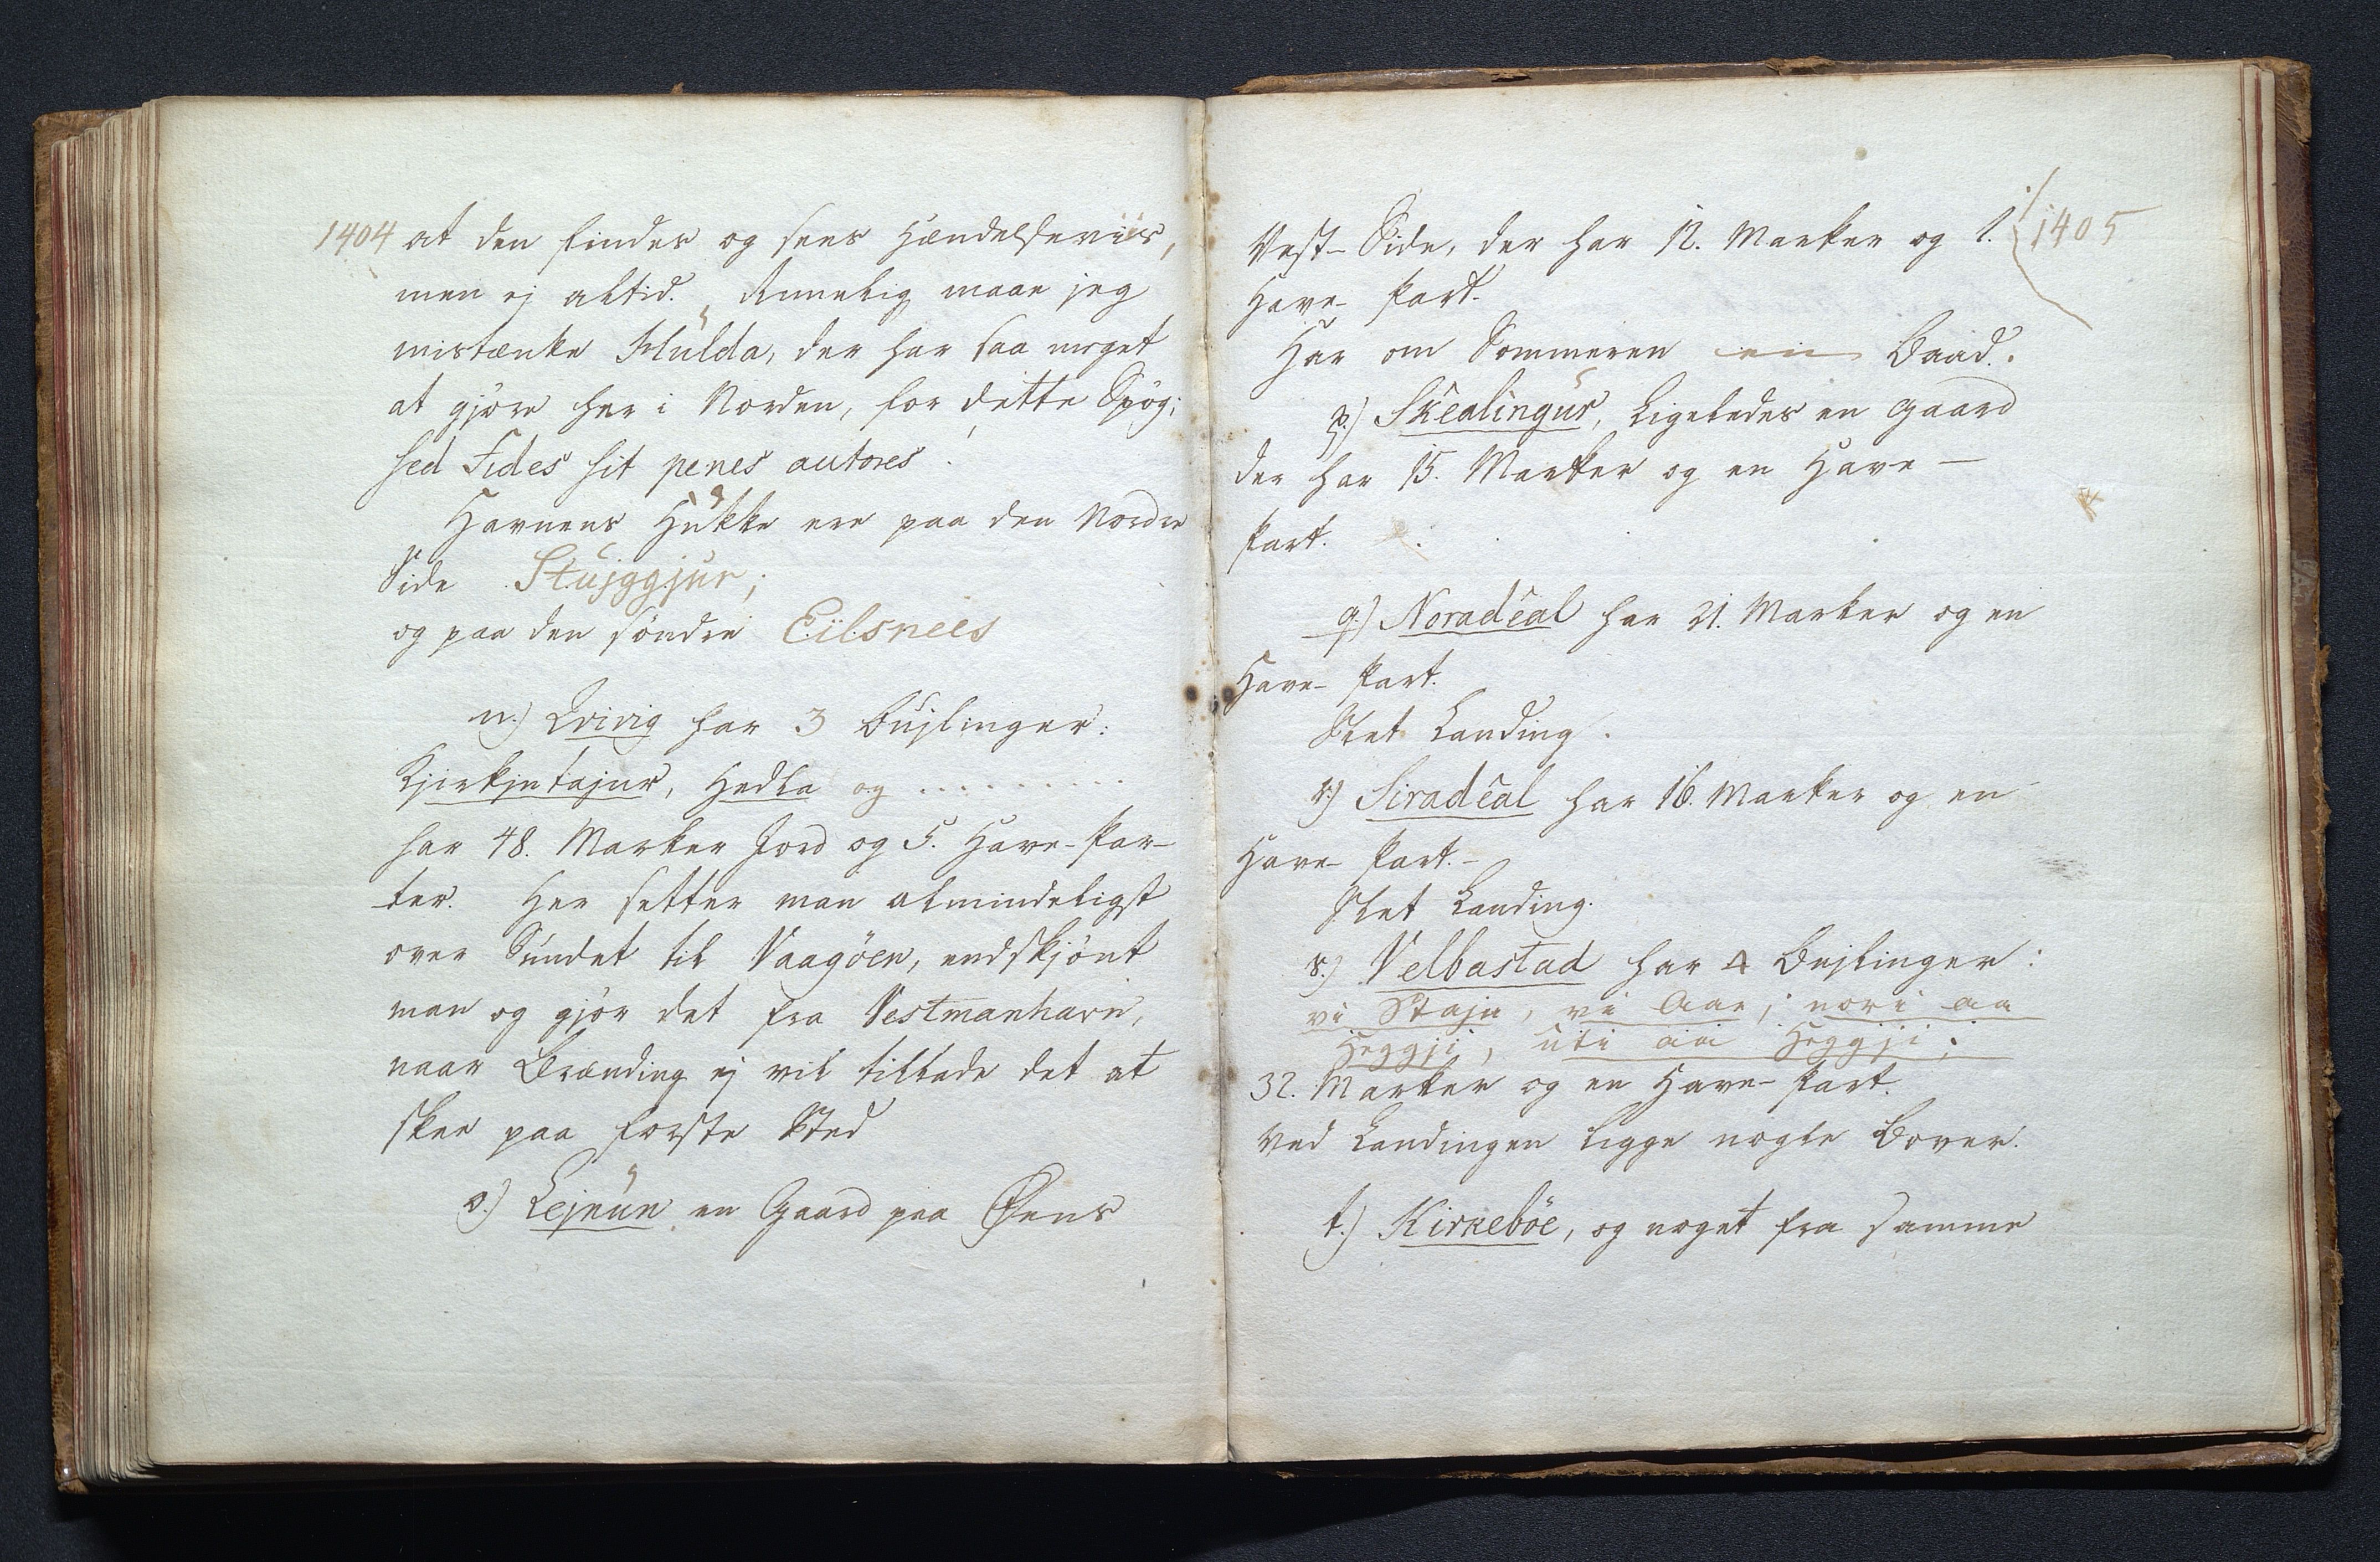 1404 at den findes og sees Hændelsesviis,
men ej altid. Rimelig maae jeg
mistænke Hulda, der har saa meget
at gjøre her i Norden, for dette Spög;
sed Fides sit penes autores.
Havnens Hukke ere paa den Nordre
Side Stujggjur;
og paa den söndre Eilsnees
n.) Qvivig har 3 Bujlinger:
Kjirkjutajur, Hedla og . . . . . . . . .
har 48. Marker Jord og 5. Have-Par-
ter. Her setter man almindeligst
over Sundet til Vaagöen, endskjönt
man og gjör det fra Vestmanhavn,
naar Brænding ej vil tillade det at
skee paa forste Sted
o.) Lejnum en Gaard paa Øens
Vest-Side, der har 12. Marker og 1. 1405
Have-Part.
Har om Sommeren een Baad.
p.) Skealingur, ligeledes en Gaard
der har 15. Marker og en Have-
Part.
q.) Noradêal har 21. Marker og en
Have-Part.
Slet Landing.
r.) Siradêal har 16. Marker og en
Have-Part.-
Slet Landing.
s.) Velbastad har 4 Bujlinger:
vi Staju, vi Aar, nori aa
Heggji, uti aa Heggji;
32. Marker og en Have-Part.
Ved Landingen ligge nogle Bover.
t.) Kirkeböe, og noget fra samme